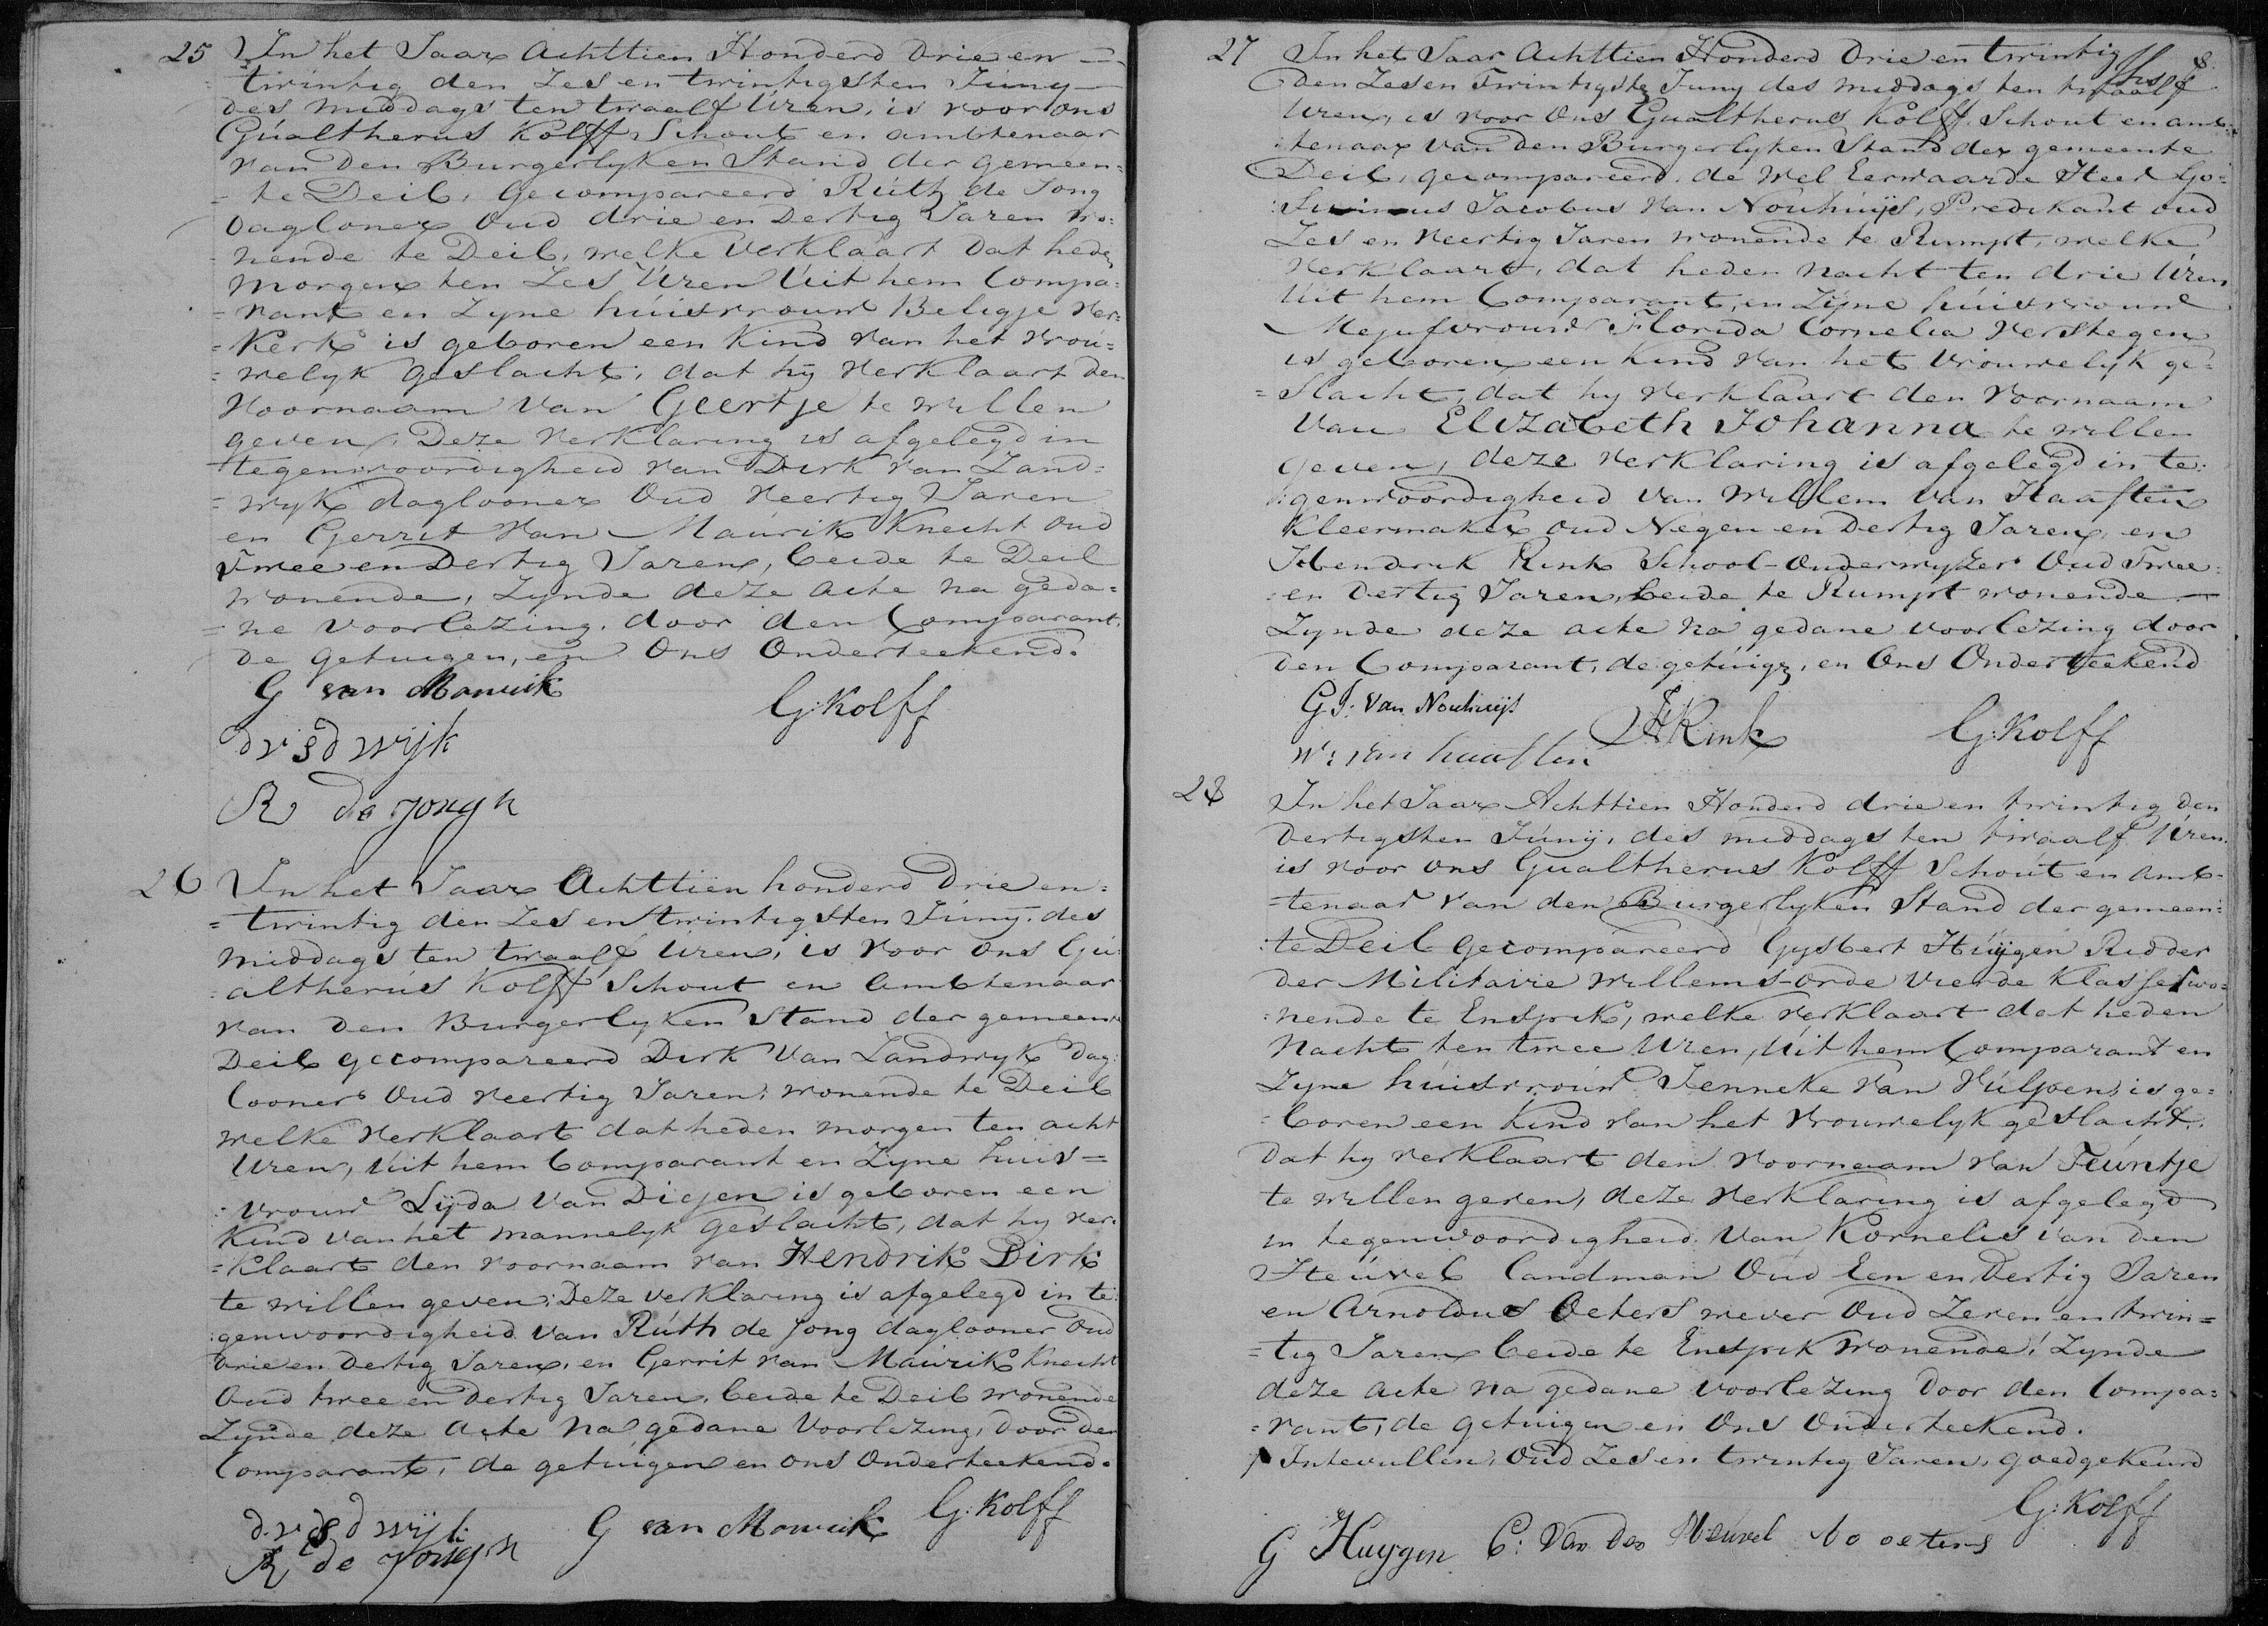 25 In het Jaar Achttien Honderd drie en
twintig den Zes en twintigsten Júny
des middags ten twaalf Uren, is voor ons
Gúaltherus Kolff, Schout en ambtenaar
van den Burgerlyken Stand der gemeen=
=te Deil, gecompareerd Rúth de Jong
Dagloner Oud drie en Dertig Jaren wo=
nende te Deil, welke verklaart dat heden
morgen ten Zes Uren Uit hem Compa=
=rant en Zyne húisvrouw Beligje Ver=
=Kerk is geboren een Kind van het vrou=
=welyk geslacht, dat hÿ verklaart den
Voornaam van Geertje te willen
geven, Deze verklaring is afgelegd in
tegenwoordigheid van Dirk van Zand=
=wyk daglooner Oud veertig Jaren
en Gerrit van Maúrik Knecht oud
Twee en Dertig Jaren, beide te Deil
wonende, Zynde deze acte na geda=
=ne voorlezing, door den Comparant,
de getuigen, en Ons Onderteekend.
G van Mourik
G: Kolff
d v s d wijk
R de jongh
26 In het Jaar Achttien honderd drie en=
=twintig den Zes en twintigsten Júnÿ, des
middags ten twaalf Uren, is voor ons Gú
=altherús Kolff Schout en Ambtenaar
van den Burgerlyken Stand der gemeente
Deil gecompareerd Dirk van Zandwyk dag=
looner Oud veertig Jaren, wonende te Deil
welke verklaart dat heden morgen ten acht
Uren, Uit hem Comparant en Zyne huis=
=vrouw Lÿda van Diejen is geboren een
Kind van het mannelyk geslacht, dat hy ver=
=klaart den voornaam van Hendrik Dirk
te willen geven; Deze verklaring is afgelegd in te
:genwoordigheid van Rúth de Jong daglooner Oud
drie en dertig Jaren, en Gerrit van Maurik Knecht
Oud twee en dertig Jaren, beide te Deil wonende
Zynde deze acte na gedane Voorlezing, door den
Comparant, de getuigen en ons Onderteekend.
d. v s d wijk
G van Mourik
G: Kolff
R de Jongh
8.
27 In het Jaar Achttien Honderd drie en twintig
den Zes en Twintigste Juny des middags ten twaalf
Uren, is voor Ons Gualtherus Kolff, Schout en amb=
:tenaar van den Burgerlyken Stand der gemeente
Deil, gecompareerd, de Wel Eerwaarde Heer Go=
:suinus Jacobus van Nouhuijs, Predikant oud
Zes en Veertig Jaren wonende te Rumpt, welke
Verklaart, dat heden nacht ten drie Uren
Uit hem Comparant, en Zÿne húisvrouw
Mejufvrouw Florida Cornelia Verstegen
is geboren een Kind van het vrouwelyk ge=
=slacht, dat hy verklaart den Voornaam
van Elizabeth Johanna te willen
geven, deze verklaring is afgelegd in te:
:genwoordigheid van Willem van Haaften
Kleermaker oud Negen en Dertig Jaren, en
Hendrik Rink School-Onderwyzer Oud Twee
=en Dertig Jaren, beide te Rumpt wonende
Zynde deze acte na gedane voorlezing door
den Comparant, de getúigen, en Ons Onderteekend
G J: van Nouhuijs
HRink
G: Kolff
W: van haaften
28 In het Jaar Achttien Honderd drie en twintig den
Dertigsten Júnij, des middags ten twaalf Uren,
is voor ons Gualtherus Kolff Schout en amb=
=tenaar van den Burgerlyken Stand der gemeen=
:te Deil gecompareerd Gysbert Húijgen Ridder
der Militaire Willems-orde vierde Klasse, wo=
=nende te Enspik, welke verklaart dat heden
Nacht ten twee Uren, Uit hem Comparant en
Zyne húisvroúw Jenneke van Húlpen, is ge=
=boren een kind van het vrouwelyk geslacht,
dat hy verklaart den voornaam van Teúntje
te willen geven, deze verklaring is afgelegd
in tegenwoordigheid van Kornelis van den
Heúvel landman Oud Een en Dertig Jaren
en Arnoldus Oeters wever Oud Zeven en twin=
=tig Jaren beide te Enspik wonende, Zynde
deze acte na gedane voorlezing door den Compa=
=rant, de getuigen en Ons Onderteekend.
Intevullen, Oud Zes en twintig Jaren, goedgekeurd
G: Kolff
G Huygen C: van den Heuvel oeters